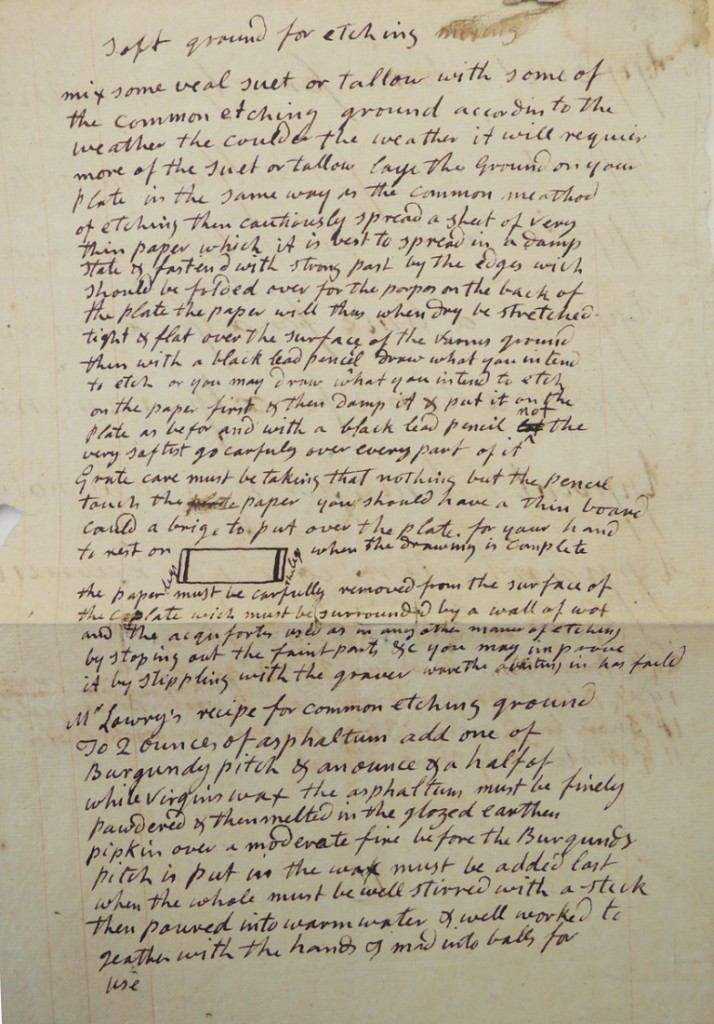 Soft ground for etching mixing
mix some veal suet or tallow with some of
the common etching ground accordin to the
weather the coulder the weather it will requier
more of the suet or tallow laye the Ground on your
plate in the same way as the common meathod
of etching then cautiously spread a sheet of very
thin paper which it is best to spread in a damp
state & fastend with strong past by the edges wich
should be folded over for the porpos on the back of
the plate the paper will thus when dry be stretched
tight & flat over the surface of the varnus ground
then with a black lead pencil draw what you intend
to etch or you may draw what you intend to etch
on the paper first & then damp it & put it on the
plate as befor and with a black lead pencil not the
very saftist go carfuly over every part of it
Grate care must be taking that nothing but the pencil
touch the plate paper you should have a thin board
could a brige to put over the plate for your hand
to rest on when the drawing is complete
ledge ledge
the paper must be carfully removed from the surface of
the plate wich must be surrounded by a wall of wax
and the aquafortis used as in any other maner of etching
by stoping out the faint parts &c you may improve
it by stippling with the graver in has faild
Mr Lowry's recipe for common etching ground
To 2 ounces of asphaltum add one of
Burgundy pitch & an ounce & a half of
white Virgins wax the asphaltum must be finely
pawdered & then melted in the glozed earthen
pipkin over a moderate fire before the Burgundy
pitch is put in the wax must be added last
when the whole must be well stirred with a stick
then poured into warm water & well worked to
geather with the hands & mad into balls for
use